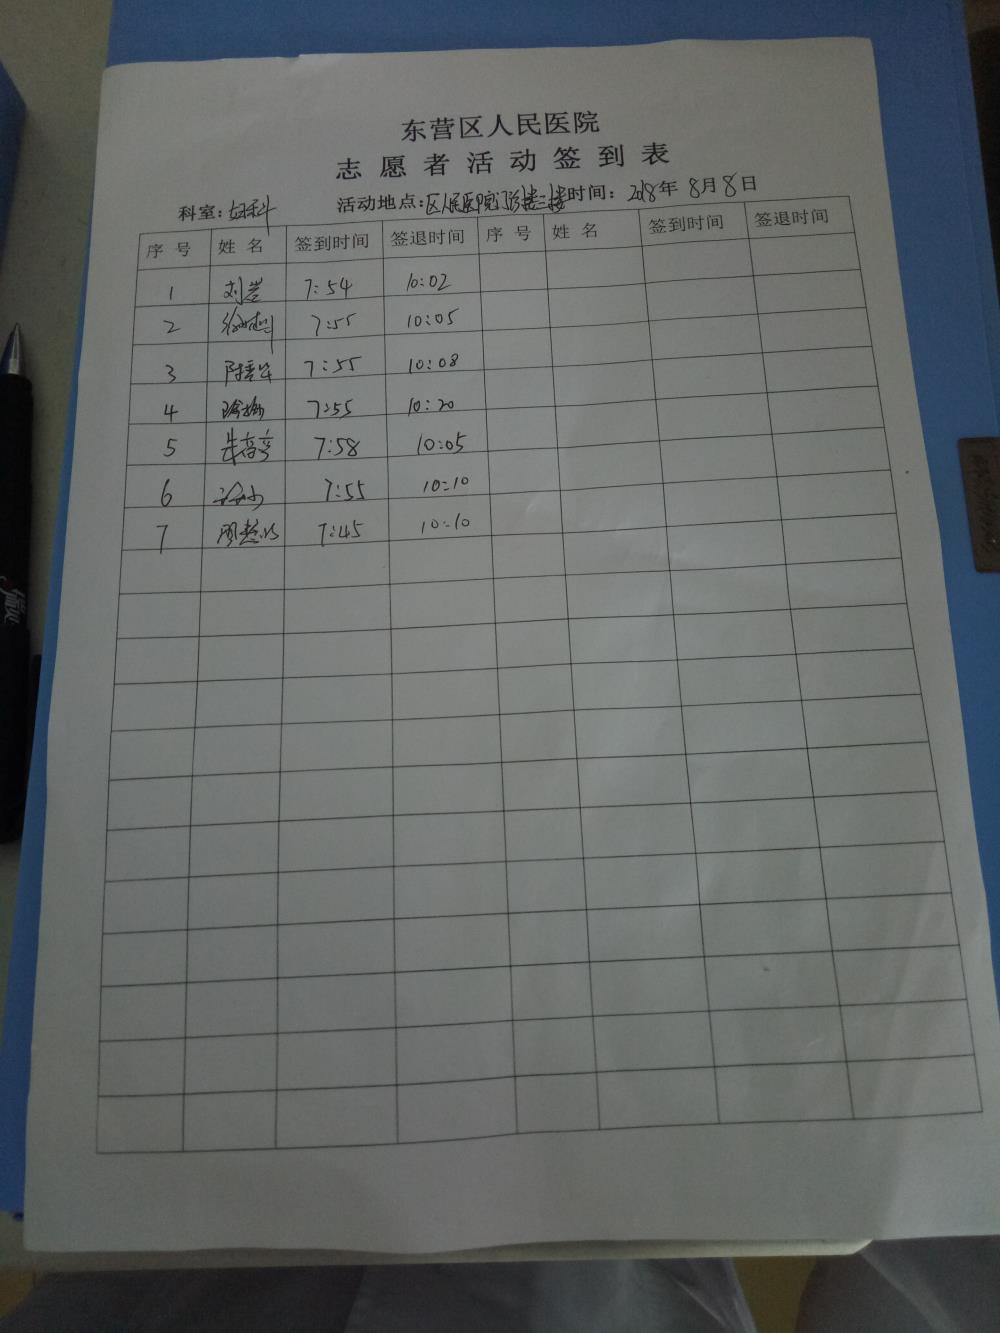 东营区人民医院
志愿者活动签到表
科室:妇科 活动地点:区人民医院门诊楼三楼 时间:2018年8月8日
序号 姓名 签到时间 签退时间 序号 姓名 签到时间 签退时间
1 刘岩 7:54 10:02
2 7:55 10:05
3 7:55 10:08
4 7:55 10:20
5 7:58 10:05
6 7:55 10:10
7 7:45 10:10